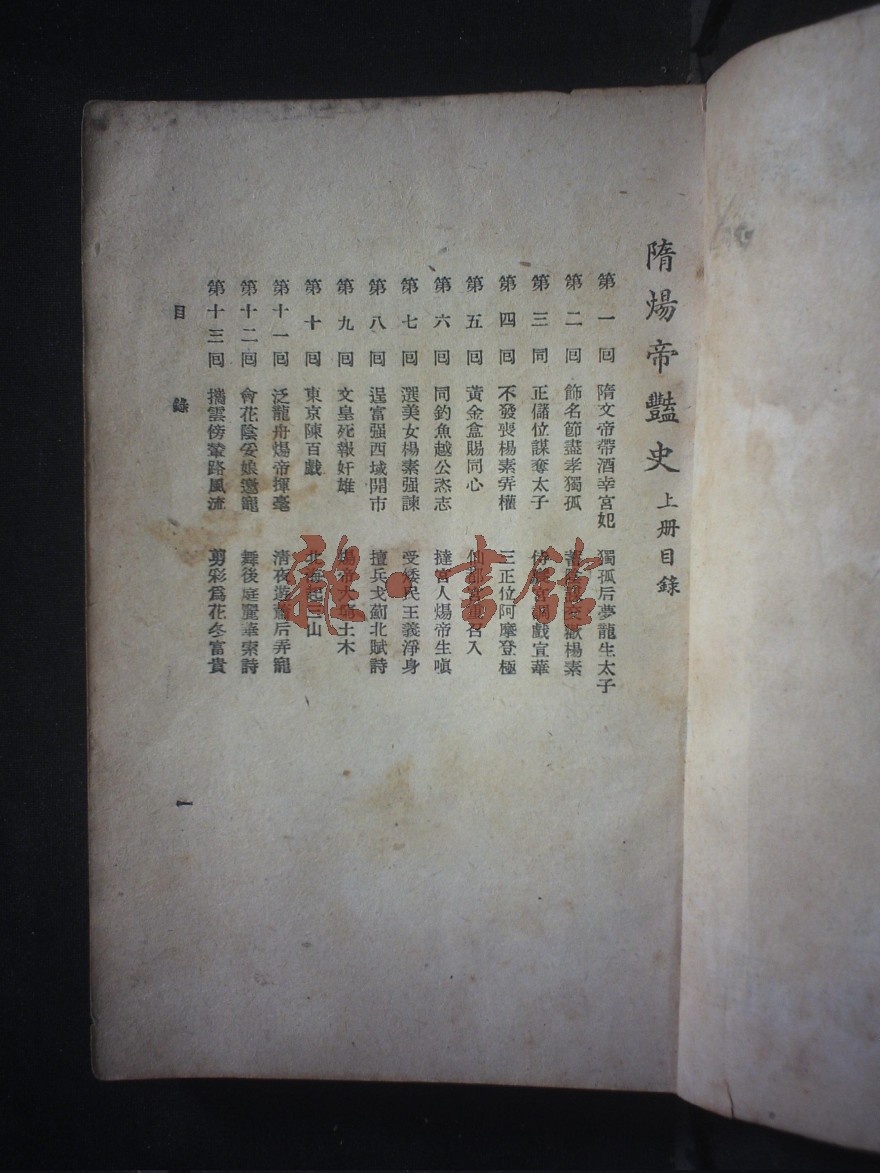 隋煬帝豔史 上册目錄
第一回 隋文帝帶酒幸宮妃 獨孤后夢龍生太子
第二回 飾名節盡孝獨孤 蓄陰謀交歡楊素
第三同 正儲位謀奪太子 侍寢宮調戲宣華
第四回 不發喪楊素弄權 三正位阿摩登極
第五回 黃金盒賜同心 仙都宮重召入
第六回 同釣魚越公恣志 撻宮人煬帝生嗔
第七回 選美女楊素强諫 受矮民王義淨身
第八回 逞富强西域開市 擅兵戈薊北賦詩
第九回 文皇死報奸雄 煬帝大窮土木
第十回 東京陳百戲 北海起三山
第十一回 泛龍舟煬帝揮毫 清夜遊蕭后弄寵
第十二回 會花陰妥娘邀寵 舞後庭麗華索詩
第十三回 攜雲傍輦路風流 剪彩爲花冬富貴
目錄 一
雜·書館